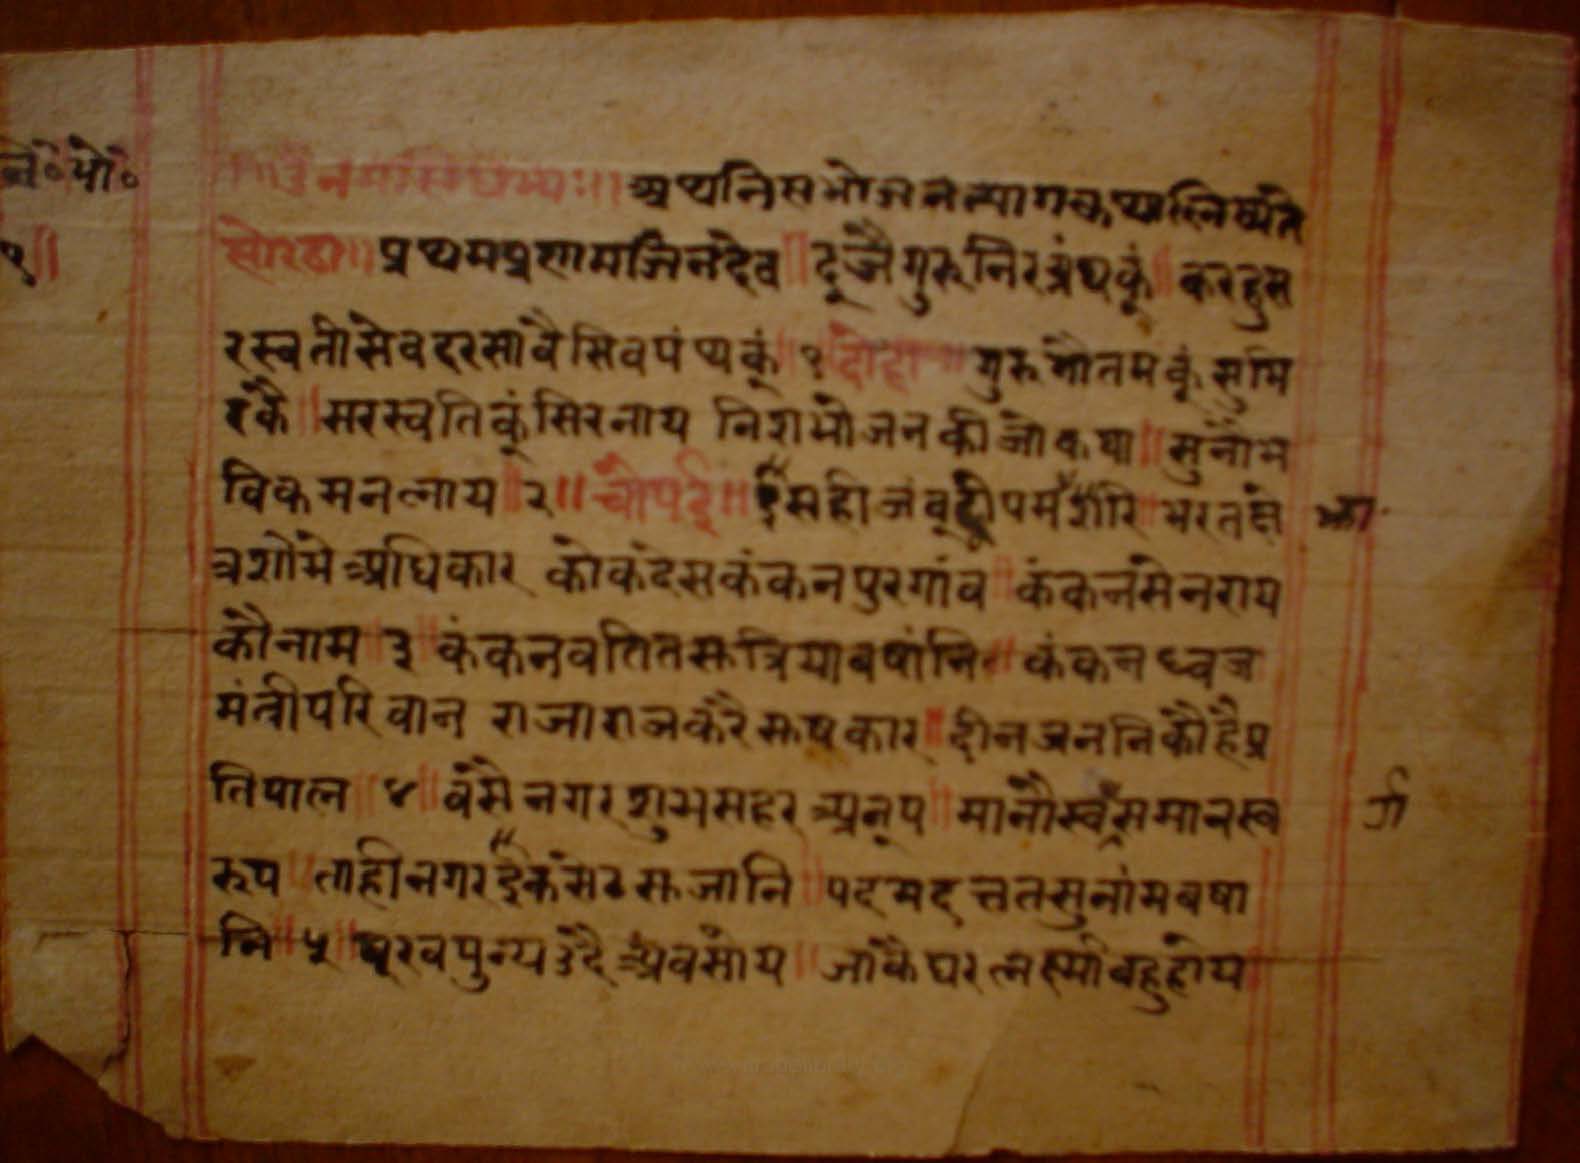 ॥ॐ नमः सिधेभ्यः॥ अथ निसभोजनत्यागकथा लिख्यते
सोरठा॥ प्रथम प्रणाम जिनदेव ॥ दूजै गुरु निरग्रंथकूं ॥ करहु स
रस्वती सेव दरसावै सिवपंथकूं ॥ १ दोहा ॥ गुरु गौतमकूं सुमि
रकै ॥ सरस्वतिकूं सिरनाय निशभोजनकी जो कथा ॥ सुनौ भ
विक मनलाय ॥ २ ॥ चौपई ॥ ईसही जंबूद्वीप मँझारि ॥ भरतक्षे
त्रशोमे अधिकार कोकदेस कंकनपुर गांव ॥ कंकनसेन राय
कौ नाम ॥ ३ ॥ कंकनवति तसु त्रिया बषांनि ॥ कंकनध्वज
मंत्री परिवान राजा राज करै सुषकार ॥ दीन जननिकौ है प्र
तिपाल ॥ ४ ॥ वंसै नगर शुभ सहर अनूप ॥ मानौ स्वर्ग समान स्व
रूप ॥ ताही नगर ईक सेठ सु जानि ॥ पदमदत्त तसु नांम बषा
नि ॥ ५ ॥ पूरव पुन्य उदै अवसोय ॥ जाकै घर लक्ष्मी बहु होय